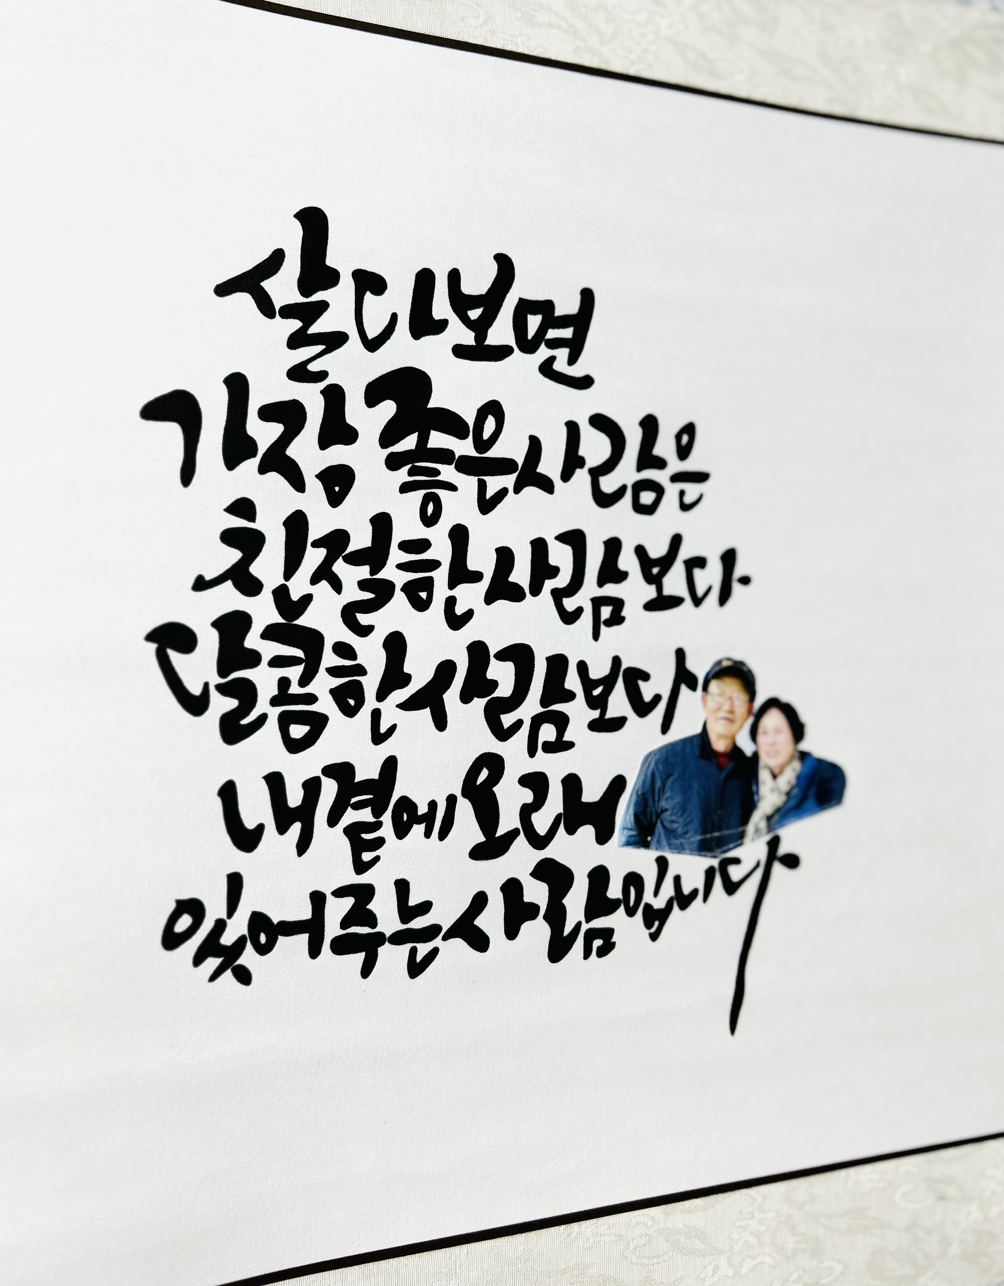 살다보면
가장 좋은 사람은
친절한 사람보다
달콤한 사람보다
내곁에 오래
있어주는 사람입니다